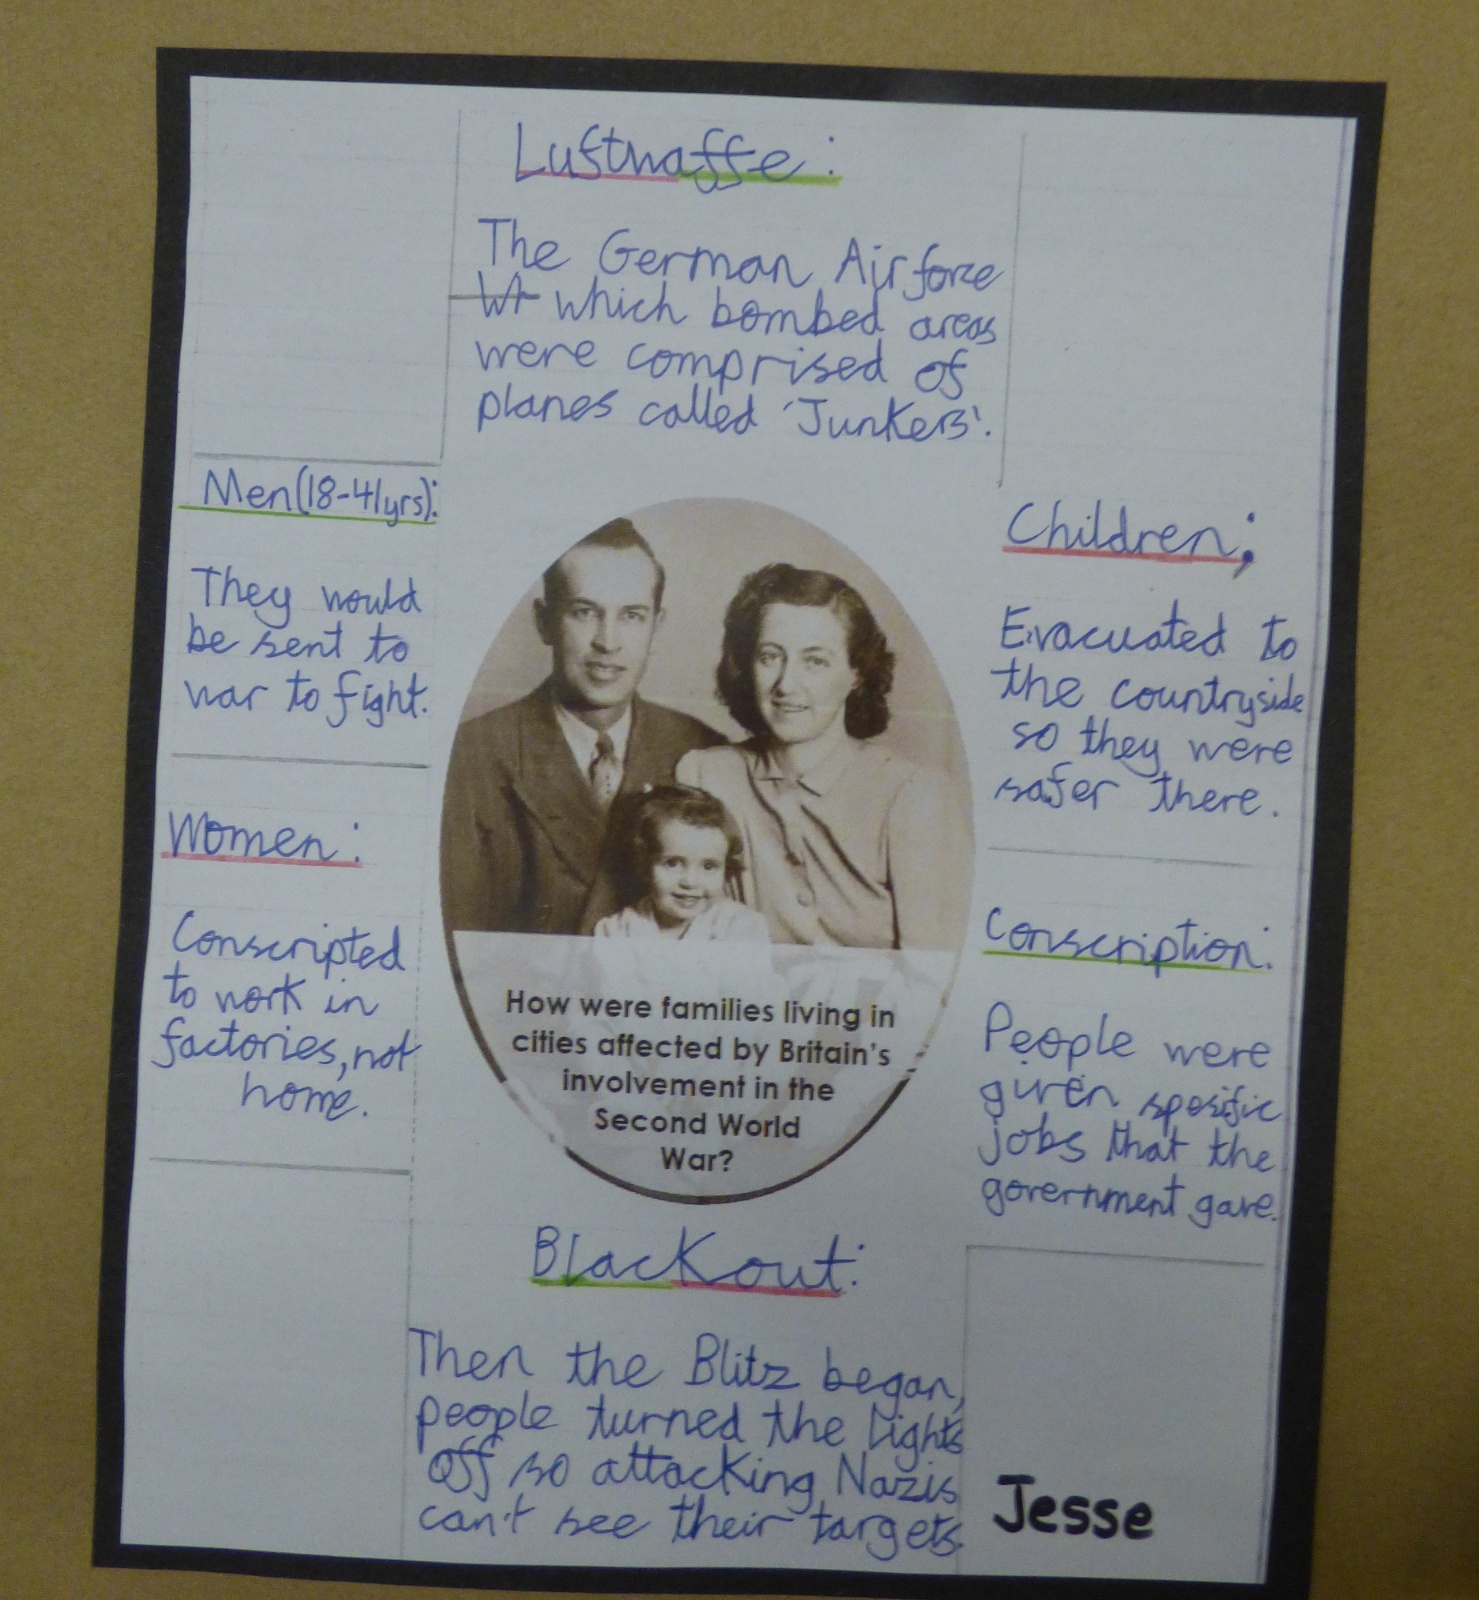 Luftwaffe:
The German Airforce
which bombed areas
were comprised of
planes called 'Junkers'.
Men(18-41yrs):
They would
be sent to
war to fight.
Women:
Conscripted
to work in
factories, not
home.
How were families living in
cities affected by Britain's
involvement in the
Second World
War?
Children;
Evacuated to
the countryside
so they were
safer there.
Conscription:
People were
given spesific
jobs that the
government gave.
Blackout:
Then the Blitz began,
people turned the Lights
Off so attacking Nazis
can't see their targets.
Jesse